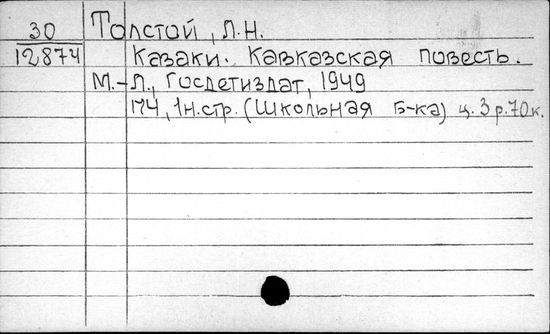 30 Толстой, Л.Н.
12874 Казаки. Кавказская повесть.
М.-Л., Госдетиздат, 1949
174, 1н.стр. (Школьная б-ка) ц. 3 р. 70 к.